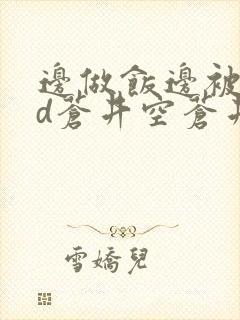 邊做飯邊被
d蒼井空蒼井
雪嬌兒